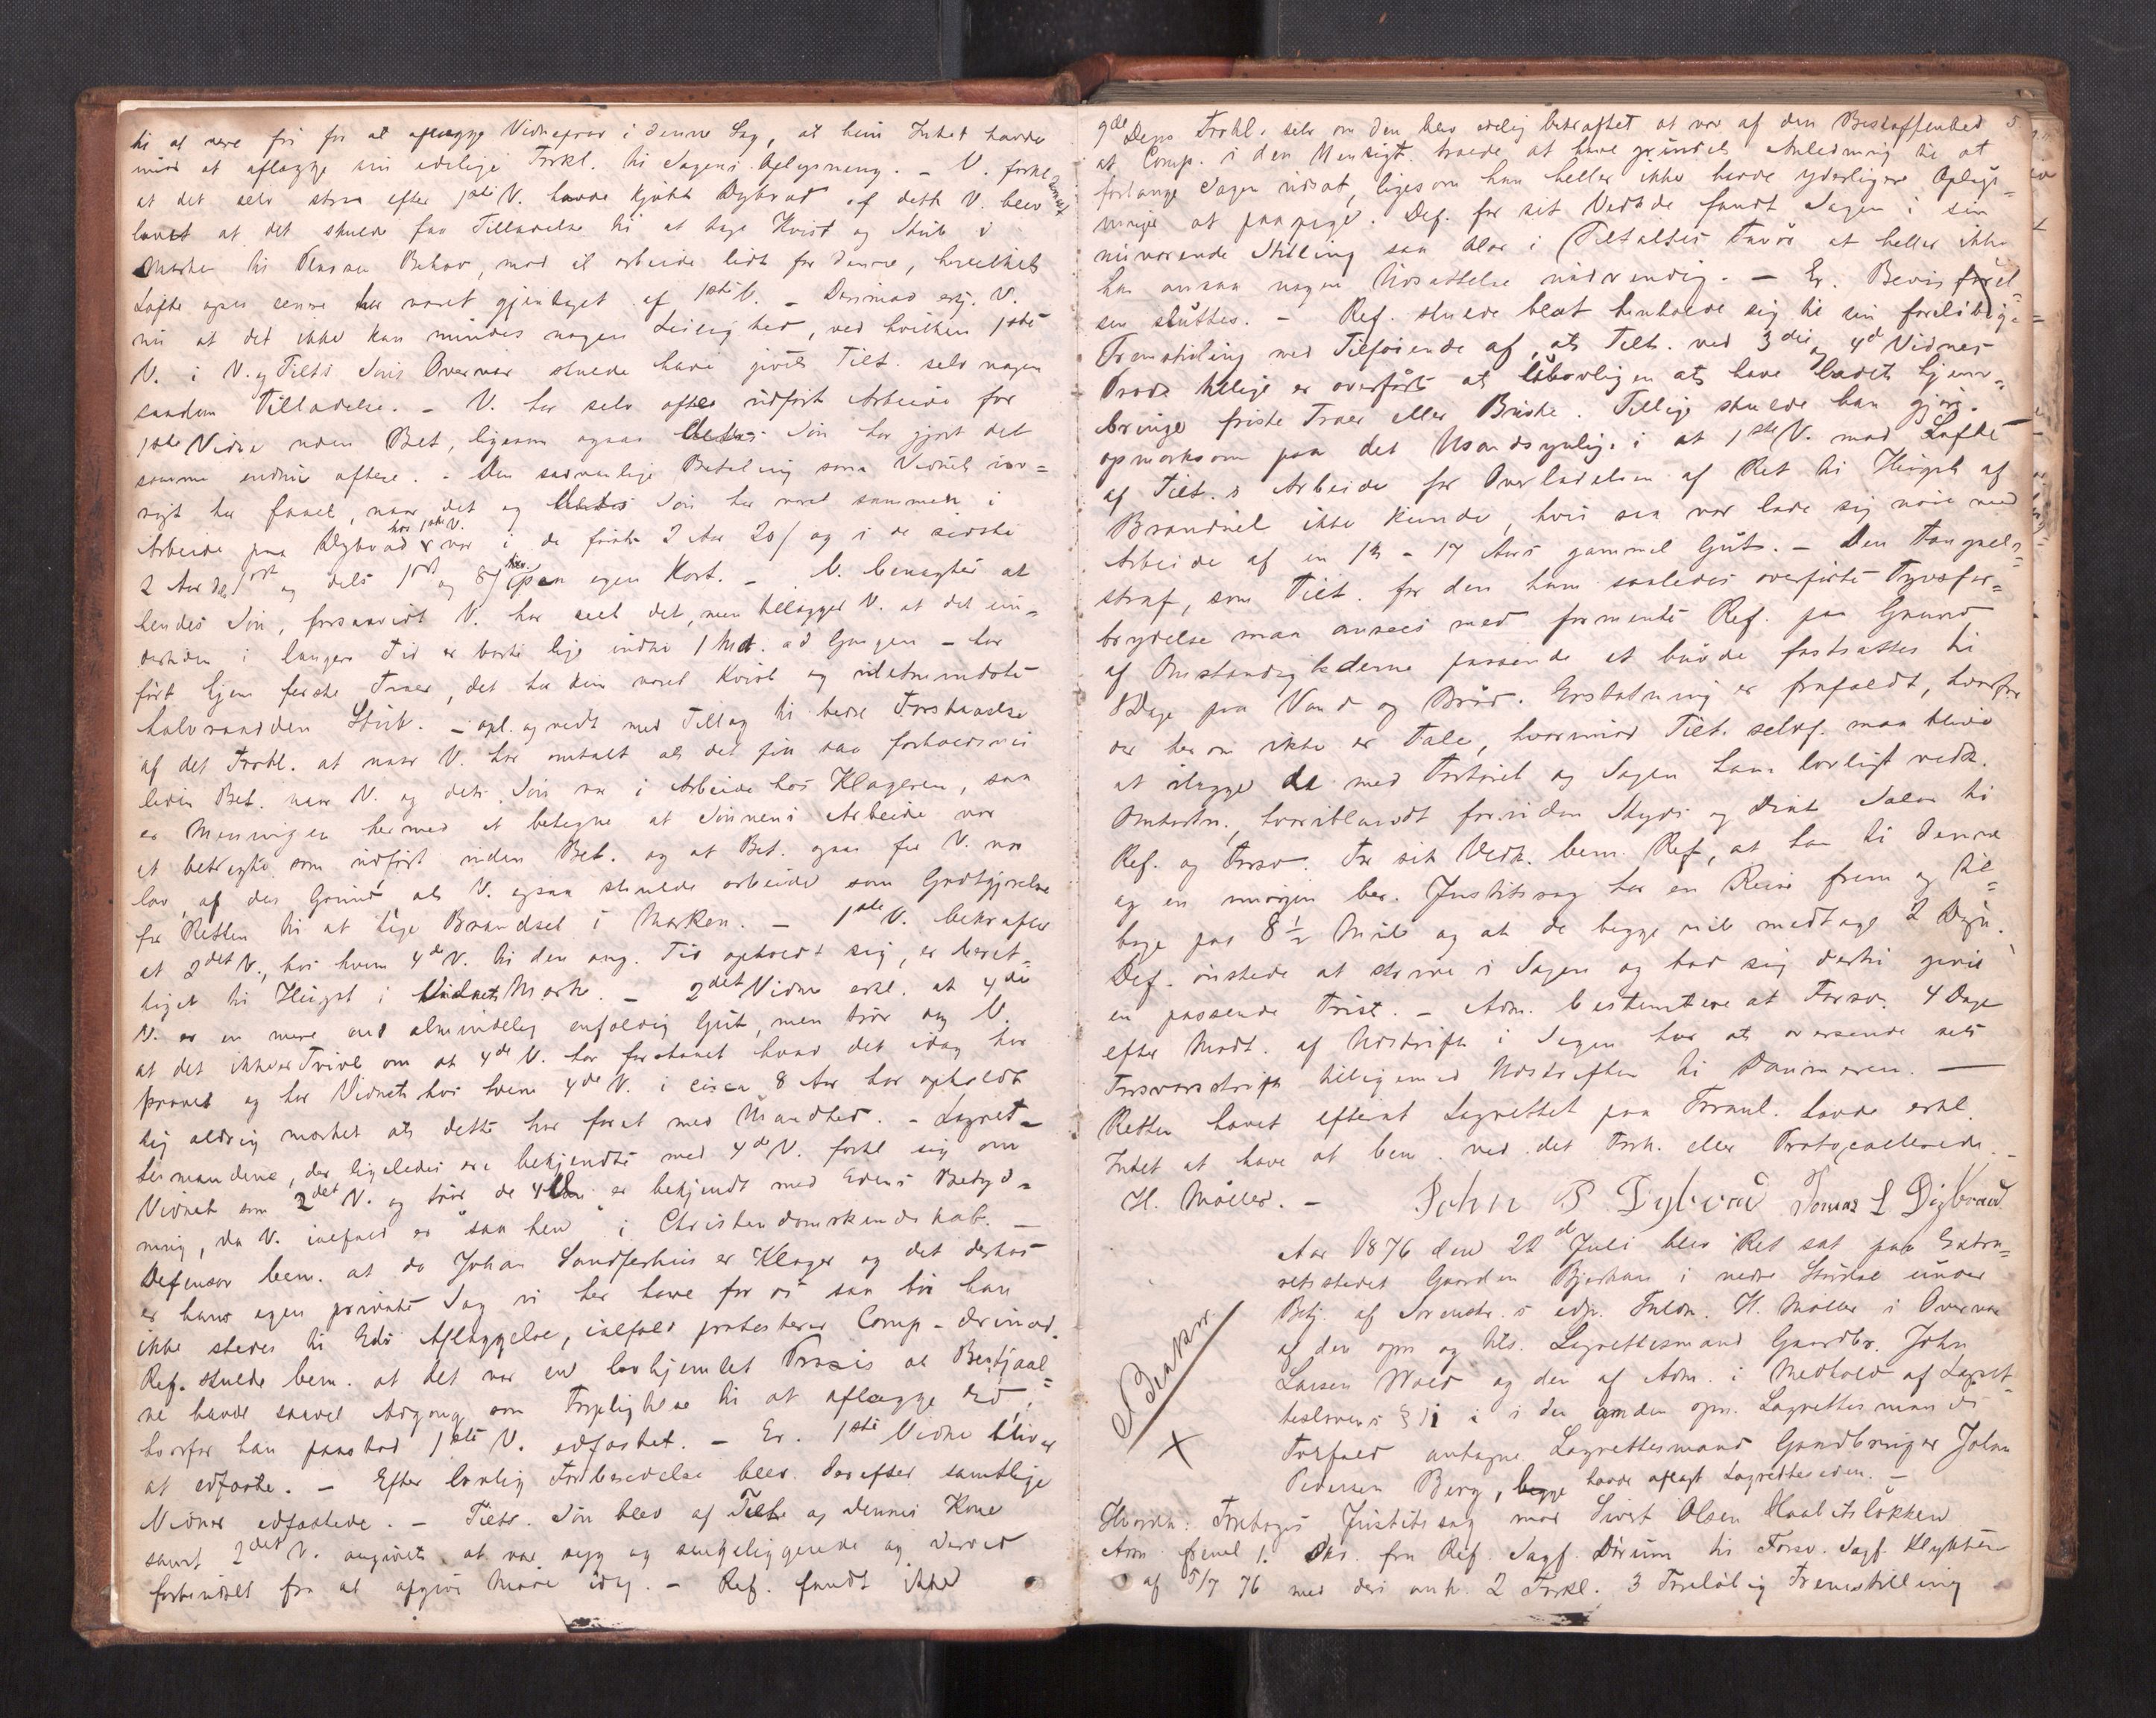 til at være fri for at aflægge Vidneprov i denne Sag, at hun Intet havde
imod at aflægge sin edelige Forkl. til Sagens Oplysning. - V. forkl.
at det selv strax efter 1ste V. havde kjøbt Dybvad af dette V. blev
lovet at det skulde faa Tilladelse til at tage Kvist og Stub i
Marken til Brug, mod at arbeide lidt for denne, hvilket
Løfte ogsaa senere har været gjentaget af 1ste V. - Derimod erkj. V.
nu at det ikke kan mindes nogen Leilighed, ved hvilken 1ste
V. i V. og Tilts Søns Overvær skulde have givet Tilt. selv nogen
saadan Tilladelse. - V. har selv oftere udført Arbeide for
1ste Vidne uden Bet., ligesom ogsaa dettes Søn har gjort det
samme endnu oftere. - Den sædvanlige Betaling som Vidnet iøv-
rigt har faaet, naar det og dettes Søn har været sammen i
Arbeide paa Dybvad hos 1ste V. var i de første 2 Aar 20 / og i de sidste
2 Aar dels 1 ort og dels 1 ort og 8 / paa egen Kost. - V. benægter at
hendes Søn, forsaavidt V. har seet det, men tillægger V. at det un-
dertiden i længere Tid er borte lige indtil 1 Md. ad Gangen - har
ført hjem ferske Træer, det har kun været Kvist og idetmindste
halvraadden Stub. - opl. og vedt. med Tillæg til bedre Forstaaelse
af det Forkl. at naar V. har omtalt at det fik saa forholdsvis
liden Bet. naar V. og dets Søn var i Arbeide hos Klageren, saa
er Meningen hermed at betegne at Sønnens Arbeide var
at betragte som udført uden Bet. og at Bet. ogsaa for V. var
lav, af den Grund at V. ogsaa skulde arbeide som Godtgjørelse
for Retten til at tage Brændsel i Marken. - 1ste V. bekræfter
at 2det V., hos hvem 4de V. til den ang. Tid opholdt sig, er beret-
tiget til Hugst i Vidnets Mark. - 2det Vidne erkl. at 4de
V. er en mere end almindelig enfoldig Gut, men tror dog V.
at det ikke er Tvivl om at 4de V. har forstaaet hvad det idag har
provet og har Vidnet hos hvem 4de V. i circa 8 Aar har opholdt
sig aldrig mærket at dette har faret med Usandhed. - Lagret-
tesmændene, der ligeledes ere bekjendte med 4de V. forkl. sig om
Vidnet som 2det V. og tror de 4de V. er bekjendt med Edens Betyd-
ning, da V. ialfald er "saa hen" i Christendomskundskab. -
Defensor bem. at da Johan Sandferhus er Klager og det derhos
er hans egen private Sag vi her have for os saa bør han
ikke stedes til Eds Aflæggelse, ialfald protesterer Comp. derimod.
Ref. skulde bem. at det var en lovhjemlet Praxis at Bestjaal-
ne havde saavel Adgang som Forpligtelse til at aflægge Ed,
hvorfor han paastod 1ste V. edfæstet. - Er. 1ste Vidne bliver
at edfæste. - Efter lovlig Forberedelse blev derefter samtlige
Vidner edfæstede. - Tilts. Søn blev af Tilt. og dennes Kone
samt 2det V. angivet at var syg og sengeliggende og derved
forhindret fra at afgive Møde idag. - Ref. fandt ikke
5.
at Dens Forkl. selv om den blev edelig bekræftet at var af den Beskaffenhed
at Comp. i den Henseende troede at have grundet Anledning til at
forlange Sagen udsat, ligesom han heller ikke havde yderligere Oplys-
ninger at paapege. Def. for sit Vedkde fandt Sagen i sin
nuværende Stilling saa klar i Tiltaltes Favør at heller ikke
han ansaa nogen Udsættelse nødvendig. - Er. Bevisførel-
sen sluttes. - Ref. skulde blot henholde sig til sin foreløbige
Fremstilling med Tilføiende af at Tilt. ved 3die og 4de Vidnes
Prov tillige er overført at ulovligen at have ladet hjem-
bringe friske Træer eller Buske. Tillige skulde han gjøre
opmærksom paa det Usandsynlige i at 1ste V. mod Løfte
af Tilt.s Arbeide for Overladelsen af Ret til Hugst af
Brændsel ikke kunde, hvis saa var lade sig nøie med
Arbeide af en 13 - 17 Aars gammel Gut. - Den Fængsels-
straf, som Tilt. for den ham saaledes overførte Tyvsfor-
brydelse maa ansees med formente Ref. paa Grund
af Omstændighederne passende at burde fastsættes til
8 Dage paa Vand og Brød. Erstatning er frafaldt, hvorfor
der herom ikke er Tale, hvorimod Tilt. selvf. maa blive
at ilægge de med Forhøret og Sagen ham lovligt vedk.
Omkostn., hvoriblandt foruden Skyds og Diæt Salær til
Ref. og Forsv. For sit Vedk. bem. Ref., at han til denne
og en imorgen ber. Justitssag har en Reise frem og til-
bage paa 8 1/2 Mile og at de begge vil medtage 2 Døgn.
Def. ønskede at skrive i Sagen og bad sig dertil givet
en passende Frist. - Adm. bestemte at Forsv. 4 Dage
efter Modt. af Udskrift i Sagen har at oversende sit
Forsvarsskrift tilligemed Udskriften til Dommeren. -
Retten hævet efterat Lagrettet paa Formul. havde erkl.
Intet at have at bem. ved det Forh. eller Protocollerede. -
H. Møller. - John P Dybvad Tomas L Dybvad
Aar 1876 den 22de Juli blev Ret sat paa Extra-
retsstedet Gaarden Bjerkan i nedre Stjørdal under
Betj. af Sorenskr.s edsv. Fuldm. H. Møller i Overvær
af den opn. og tils. Lagrettesmand Gaardbr. John
Larsen Wold og den af Adm. i Medhold af Lagret-
teslovens § 1 i den anden opn. Lagrettesmands
Forfald antagne Lagrettesmand Gaardbruger Johan
Pedersen Berg, begge havde aflagt Lagretteseden. -
Beskr.
X
Hvorda: Foretoges Justitssag mod Sivert Olsen Haabetsløkken
Adm. freml. 1. Skr. fra Ref. Sagf. Dirum til Forsv. Sagf. Klykken
af 5/7 76 med dens ank. 2 Forkl. 3 Foreløbig Fremstilling